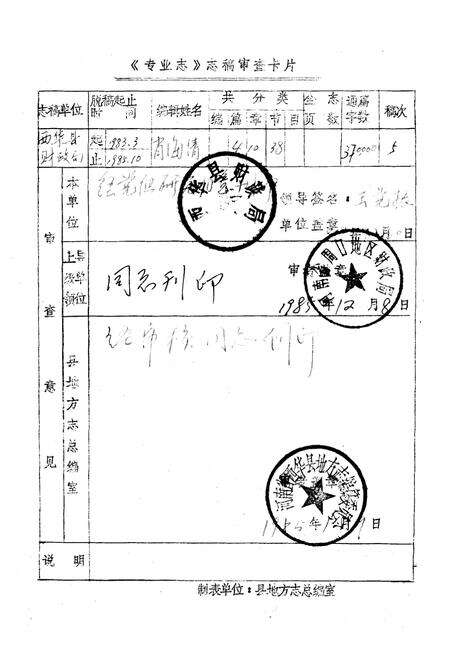 《专业志》志稿审查卡片
志稿单位 脱稿起止时间 编辑姓名 共分类 总页数 志 通篇字数 稿次
编 篇 章 节 目
西华县财政局 起1983.3 止1985.10 肖海清 4 10 38 370000 5
审查意见
本单位
西华县财政局
领导签名:
单位盖章
日
上级领导单位
同意刊印
河南省周口地区财政局
1985年12月8日
县地方志总编室
同意刊印
河南省西华县地方志编纂委员会
1985年 月 日
说明
制表单位:县地方志总编室